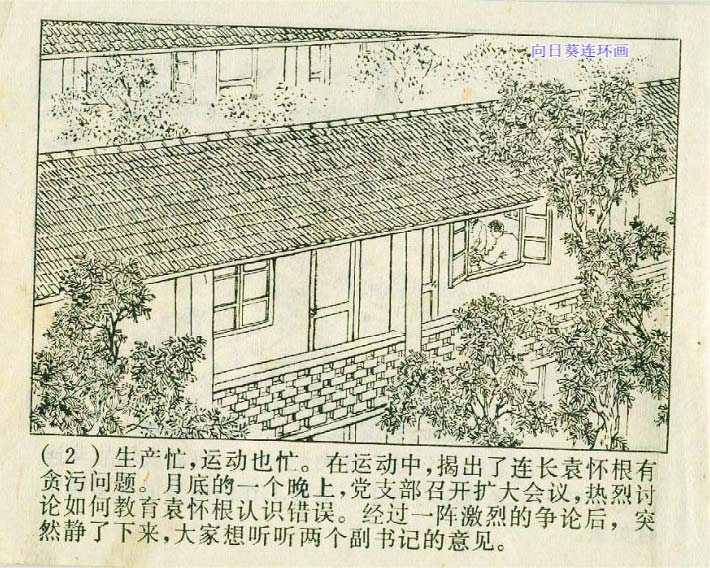 向日葵连环画
(2)生产忙，运动也忙。在运动中，揭出了连长袁怀根有
贪污问题。月底的一个晚上，党支部召开扩大会议，热烈讨
论如何教育袁怀根认识错误。经过一阵激烈的争论后，突
然静了下来，大家想听听两个副书记的意见。